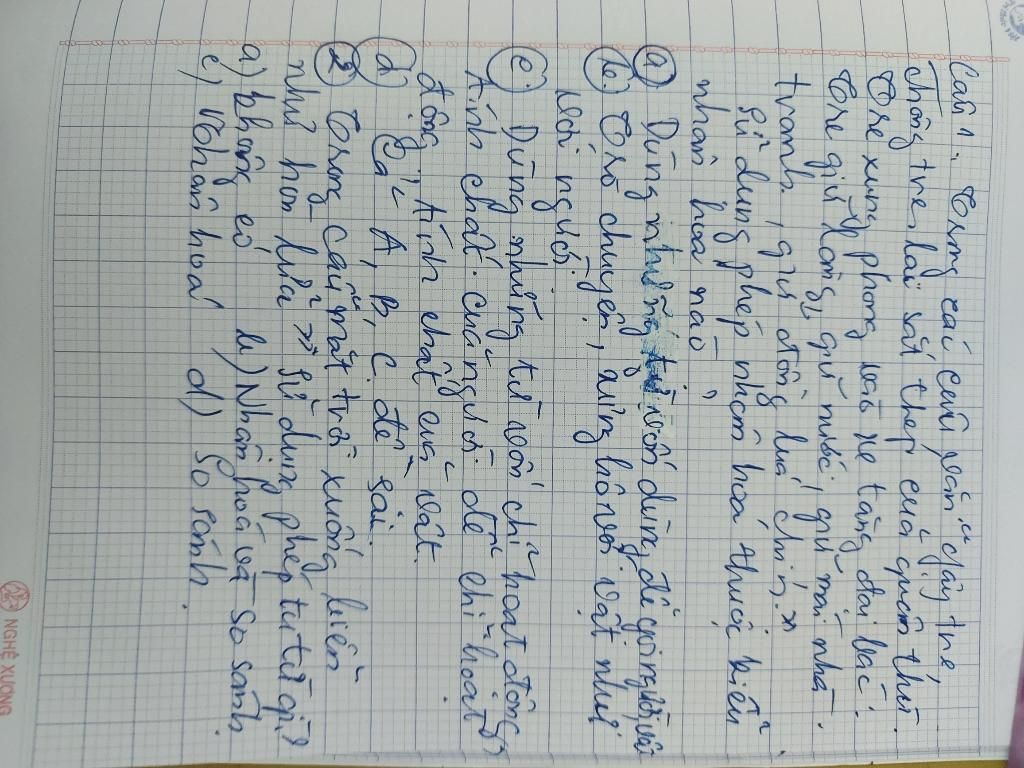 Câu 1. Trong các câu văn "Gậy tre,
chông tre lại sắt thép của quân thù.
Tre xung phong vào xe tăng đại bác.
Tre giữ làng, giữ nước, giữ mái nhà
tranh, giữ đồng lúa chín."
Sử dụng phép nhân hoá thuộc kiểu
nhân hoá nào?
a) Dùng những từ vốn dùng để gọi người, vật
b) Trò chuyện, xưng hô với vật như
với người.
c) Dùng những từ vốn chỉ hoạt động,
tính chất của người để chỉ hoạt
động, tính chất của vật.
d) Cả A, B, C đều sai.
2) Trong câu "mặt trời xuống biển
như hòn lửa" sử dụng phép tu từ gì?
a) không có b) Nhân hoá và so sánh
c) Nhân hoá d) So sánh.
NGHỆ XƯƠNG